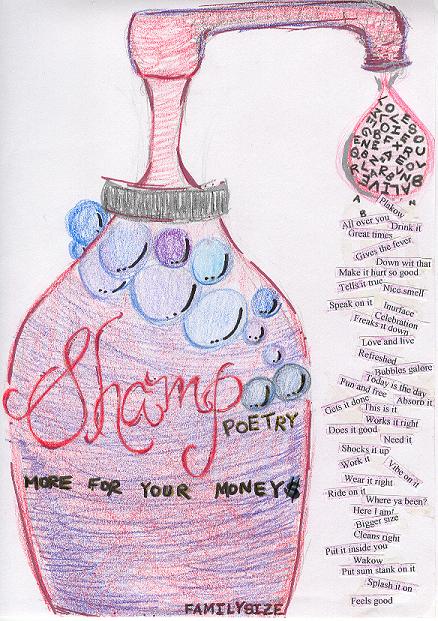 Shamp
POETRY
MORE FOR YOUR MONEY$
FAMILYSIZE
Plakow
All over you
Drink it
Great times
Gives the fever
Down wit that
Make it hurt so good
Tells it true
Nice smell
Speak on it
Inurface
Celebration
Freaks it down
Love and live
Refreshed
Bubbles galore
Today is the day
Fun and free
Absorb it
Gets it done
This is it
Works it right
Does it good
Need it
Shocks it up
Work it
Vibe on it
Wear it right
Ride on it
Where ya been?
Here I am!
Bigger size
Cleans right
Put it inside you
Wakow
Put sum stank on it
Splash it on
Feels good